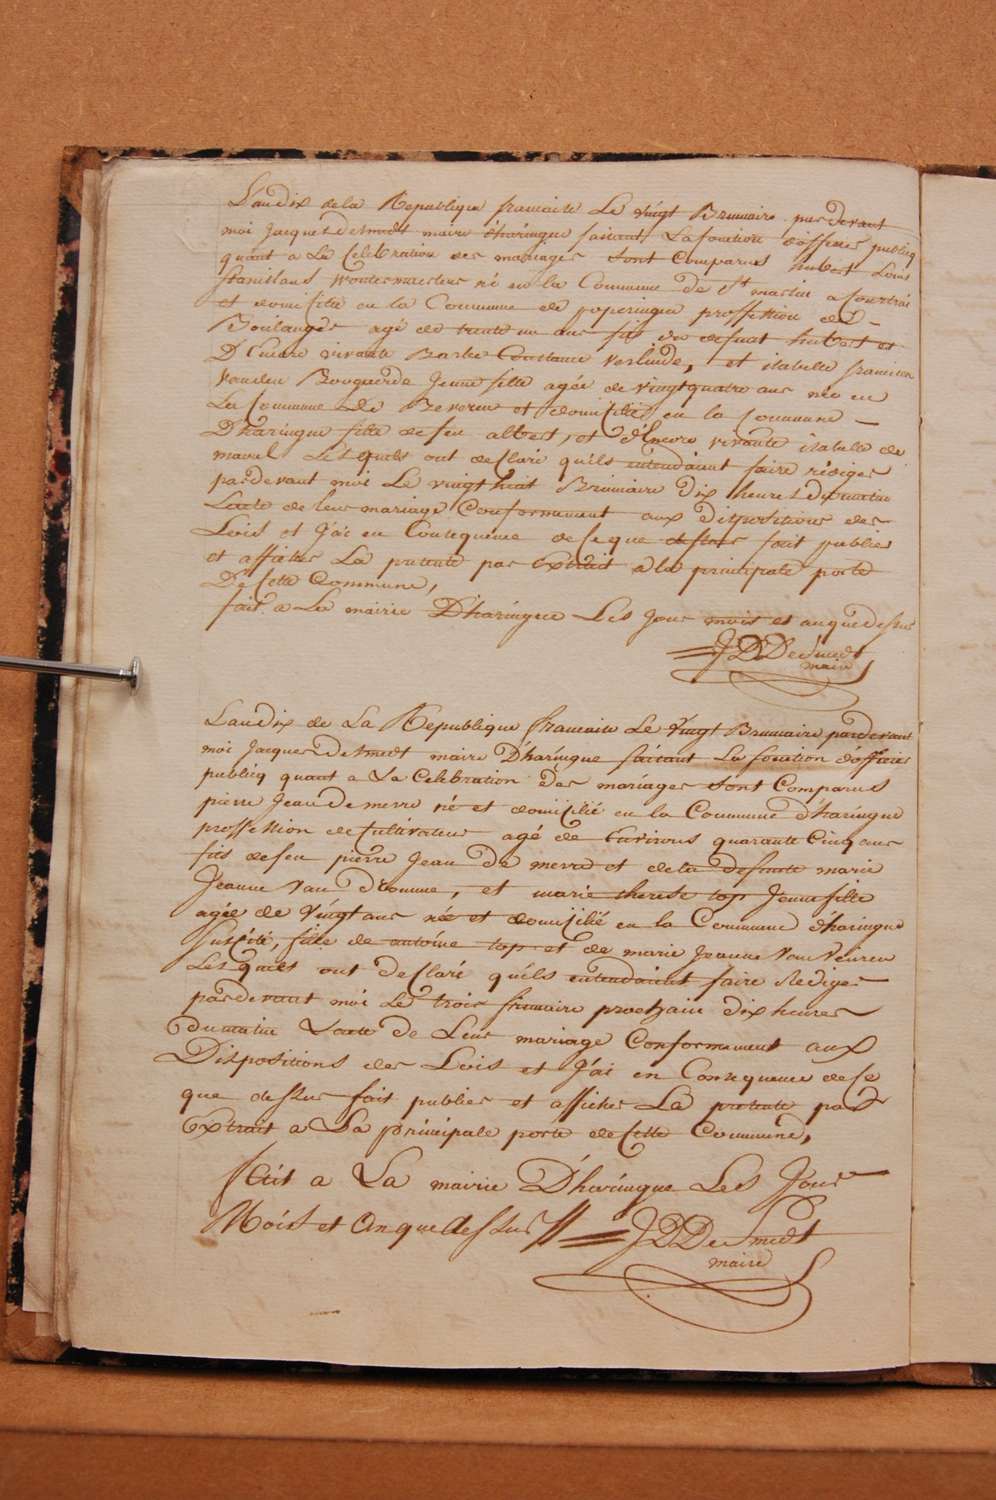 L'an dix de la Republique francaise Le vingt Brumaire pardevant
moi Jacques deSmedt maire d'haringue faisant La fonction d'officier publicq
quant a La Celebration des mariages sont Comparus hubert Louis
Stanislaus Woutermaertens né en la Commune de St martin a Courtrai
et domicilié en la Commune de poperingue proffession de
Boulanger agé de trente un ans fils de defunt hubert et
D'Encore vivante Barbe Constance Verlinde, et isabelle francisca
vanden Bougaerde Jeune fille agée de vingtquatre ans née en
La Commune De Beveren et domicilié en la Commune
D'haringue fille de feu albert, et d'Encore vivante isabelle de
mavel Lesquels ont deClaré qu'ils entendaient faire rédiger
pardevant moi Le vingthuit Brumaire dix heures dumatin
Lacte de leur mariage Conformement aux dispositions des
Lois et J'ai en Consequence de Ce que dessus fait publier
et afficher La presente par Extrait a la principale porte
De Cette Commune,
fait a La mairie D'haringue Les Jour mois et anquedessus
JDDeSmedt
maire
Lan dix de La Republique francaise Le vingt Brumaire pardevant
moi Jacques deSmedt maire D'haringue faisant La fonction d'officier
publicq quant a La Celebration Des mariages sont Comparus
pierre Jean de merre né et domicilié en la Commune d'haringue
proffession de Cultivateur agé de Environs quarante Cinq ans
fils de feu pierre Jean De merre et de la defunte marie
Jeanne van D'omme, et marie therese top Jeune fille
agée de vingt ans née et domicilié en la Commune d'haringue
Susdite, fille de antoine top et de marie Jeanne
Lesquels ont deClaré qu'ils entendaient faire Rediger
pardevant moi Le trois frimaire prochain dix heures
Dumatin Lacte de Leur mariage Conformement aux
Dispositions des Lois et J'ai en Consequence de Ce
que dessus fait publier et afficher La presente par
Extrait a La principale porte de Cette Commune,
fait a La mairie D'haringue Les Jour
Mois et an que dessus
JDDeSmedt
maire